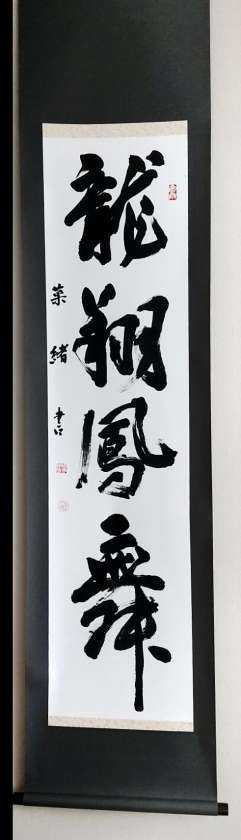 龍翔鳳舞
菜緒